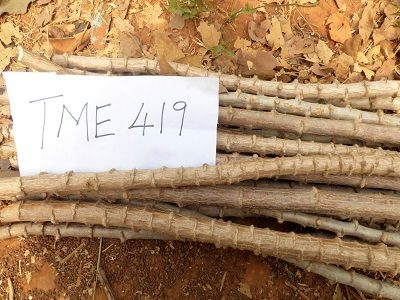 TME 419